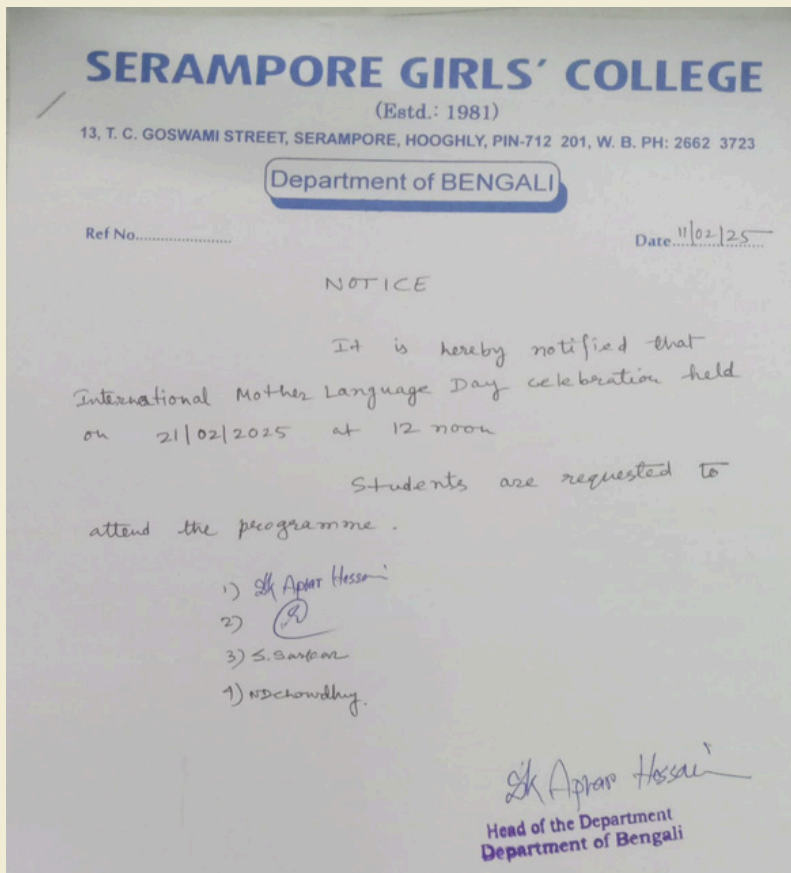 SERAMPORE GIRLS' COLLEGE
(Estd.: 1981)
13, T. C. GOSWAMI STREET, SERAMPORE, HOOGHLY, PIN-712 201, W. B. PH: 2662 3723
Department of BENGALI
Ref No..................... Date 11/02/25
NOTICE
It is hereby notified that
International Mother Language Day celebration held
on 21/02/2025 at 12 noon
Students are requested to
attend the programme.
1) Sk Aptar Hossain
2)
3) S. Sarkar
4) NDChowdhury.
Sk Aptar Hossain
Head of the Department
Department of Bengali